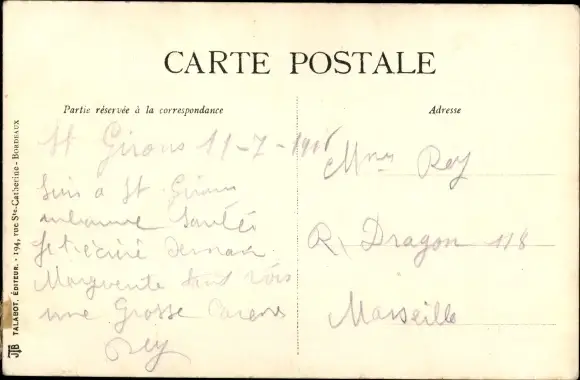 CARTE POSTALE
Partie réservée à la correspondance
Adresse
St Girons 11-7-1916
Suis a St Girons
en bonne Santé
Je t'écriré Demain
Marguerite
une Grosse Caresse
Rey
Mme Rey
R. Dragon 118
Marseille
TALABOT, ÉDITEUR. - 194, rue Ste-Catherine - BORDEAUX